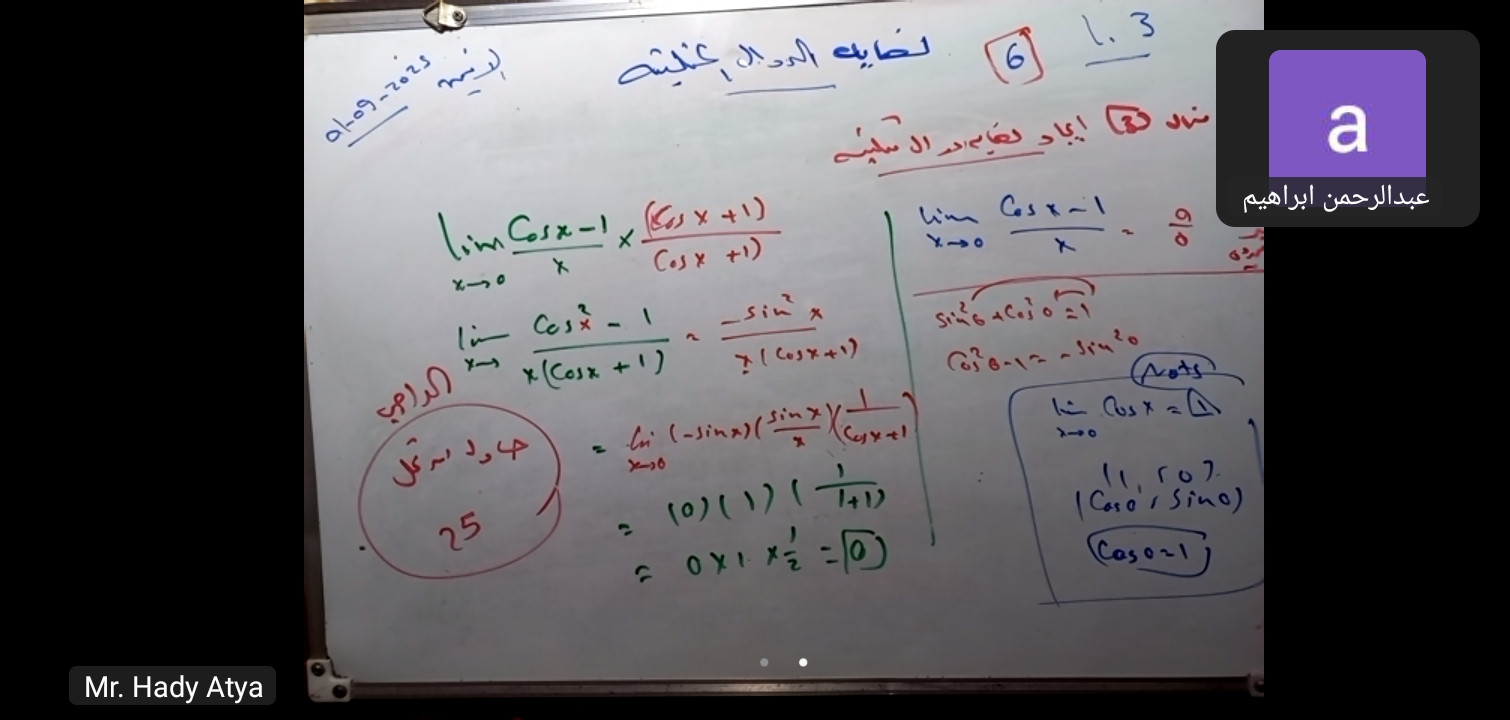 1.3
6
نهايات الدوال المثلثية
الاثنين
01-09-2025
مثال 3 ايجاد نهايات الدوال المثلثية
lim x→0 (Cosx-1)/x = 0/0
sin²θ + cos²θ = 1
Cos²θ-1 = -sin²θ
Nots
lim x→0 Cosx = 1
(1, 0)
(Cos0, Sin0)
Cos0=1
lim x→0 (Cosx-1)/x × (Cosx+1)/(Cosx+1)
lim x→ (Cos²x - 1)/(x(Cosx+1)) = -sin²x/(x(Cosx+1))
= lim x→0 (-sinx)(sinx/x)(1/(Cosx+1))
= (0)(1)(1/(1+1))
= 0×1×1/2 = 0
الواجب
حاول ان تحل
25
a
عبدالرحمن ابراهيم
Mr. Hady Atya